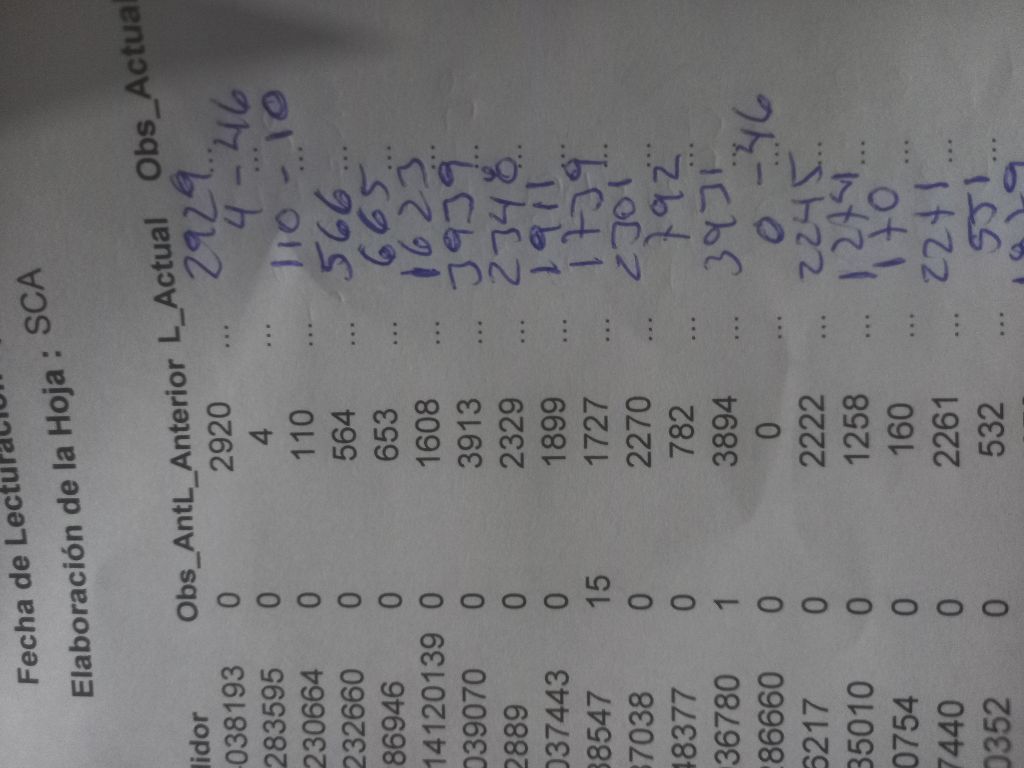 Fecha de Lecturación
Elaboración de la Hoja : SCA
lidor Obs_AntL_Anterior L_Actual Obs_Actual
038193 0 2920 ... 2929 ...
283595 0 4 ... 4 - 46 ...
230664 0 110 ... 110 - 10 ...
232660 0 564 ... 566 ...
86946 0 653 ... 665 ...
14120139 0 1608 ... 1623 ...
039070 0 3913 ... 3939 ...
2889 0 2329 ... 2348 ...
037443 0 1899 ... 1911 ...
38547 15 1727 ... 1739 ...
37038 0 2270 ... 2301 ...
48377 0 782 ... 792 ...
036780 1 3894 ... 3931 ...
286660 0 0 ... 0 - 46 ...
62217 0 2222 ... 2245 ...
35010 0 1258 ... 1274 ...
0754 0 160 ... 170 ...
7440 0 2261 ... 2271 ...
0352 0 532 ... 551 ...